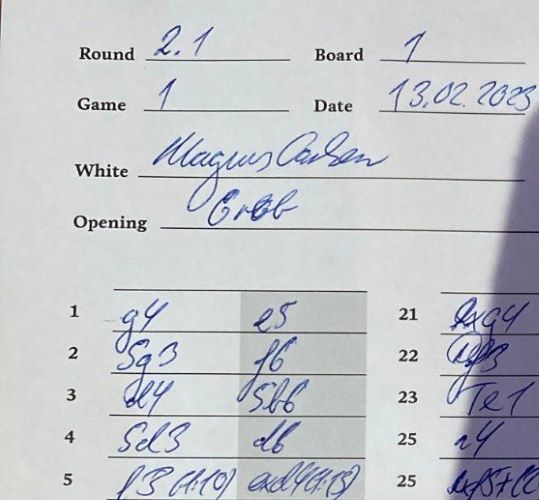 Round 2.1 Board 1
Game 1 Date 13.02.2023
White Magnus Carlsen
Opening Grob
1 g4 e5 21 xg4
2 Sg3 f6 22
3 d4 Sb6 23 Te1
4 Sd3 d6 25 a4
5 f3 (1:10) exd4 (1:15) 25